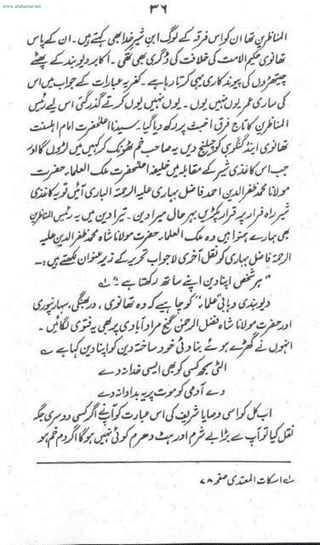 www.alahazrat.net
۳۶
المناظرین تھا ان کو اس فرقہ کے لوگ ابن شیر خدا بھی کہتے ہیں۔ ان کے پاس
تھانوی حکیم الامت کی خلافت کی ڈگری بھی تھی۔ اکابر دیوبند کے پھٹے
چیتھڑوں کی پیوند کاری یہی کرتا رہا ہے۔ کفریہ عبارات کے جواب میں اس
کی ساری عمر یوں نہیں یوں۔ یوں نہیں یوں کرتے گذر گئی اسلیے رئیس
المناظرین کا تاج فرق اخبث پر رکھ دیا گیا۔ سیدنا اعلحضرت امام اہلسنت
تھانوی اینڈ گنگوہی کو چیلنج دیں یہ صاحب خم ٹھونک کر کہیں میں لڑوں گا اور
جب اس کاغذی شیر کے مقابلہ میں خلیفہ اعلحضرت ملک العلماء حضرت
مولانا محمد ظفر الدین احمد فاضل بہاری علیہ الرحمۃ الباری آئیں تو یہ کاغذی
شیر راہ فرار پر قرار پکڑیں بہر حال میرا دین۔ تیرا دین میں یہ رئیس المناظرین
بھی ہمارے ہمنوا ہیں وہ ملک العلماء حضرت مولانا شاہ محمد ظفر الدین علیہ
الرحمۃ فاضل بہاری کو نقل آخری لاجواب تحریر کے زیر عنوان لکھتے ہیں :۔
"ہر شخص اپنا دین اپنے ساتھ رکھتا ہے" لہ
دیوبندی وہابی علماء کو چاہیے کہ وہ تھانوی، دربھنگی، سہارنپوری
اور حضرت مولانا شاہ فضل الرحمن گنج مراد آبادی پر بھی فتویٰ لگائیں۔
انہوں نے گھڑے ہوئے بناوٹی خود ساختہ دین کو اپنا دین کہا ہے
الٹی سمجھ کسی کو بھی ایسی خدا نہ دے
دے آدمی کو موت پر یہ بد ادا نہ دے
اب کل کو اسی وصایا شریف کی اس عبارت کو آپ نے اگر کسی دوسری جگہ
نقل کیا تو آپ سے بڑا بے شرم اور ہٹ دھرم کوئی نہیں ہوگا اگر دم خم ہو
لہ اسکات المعتدی صفحہ ۷۸